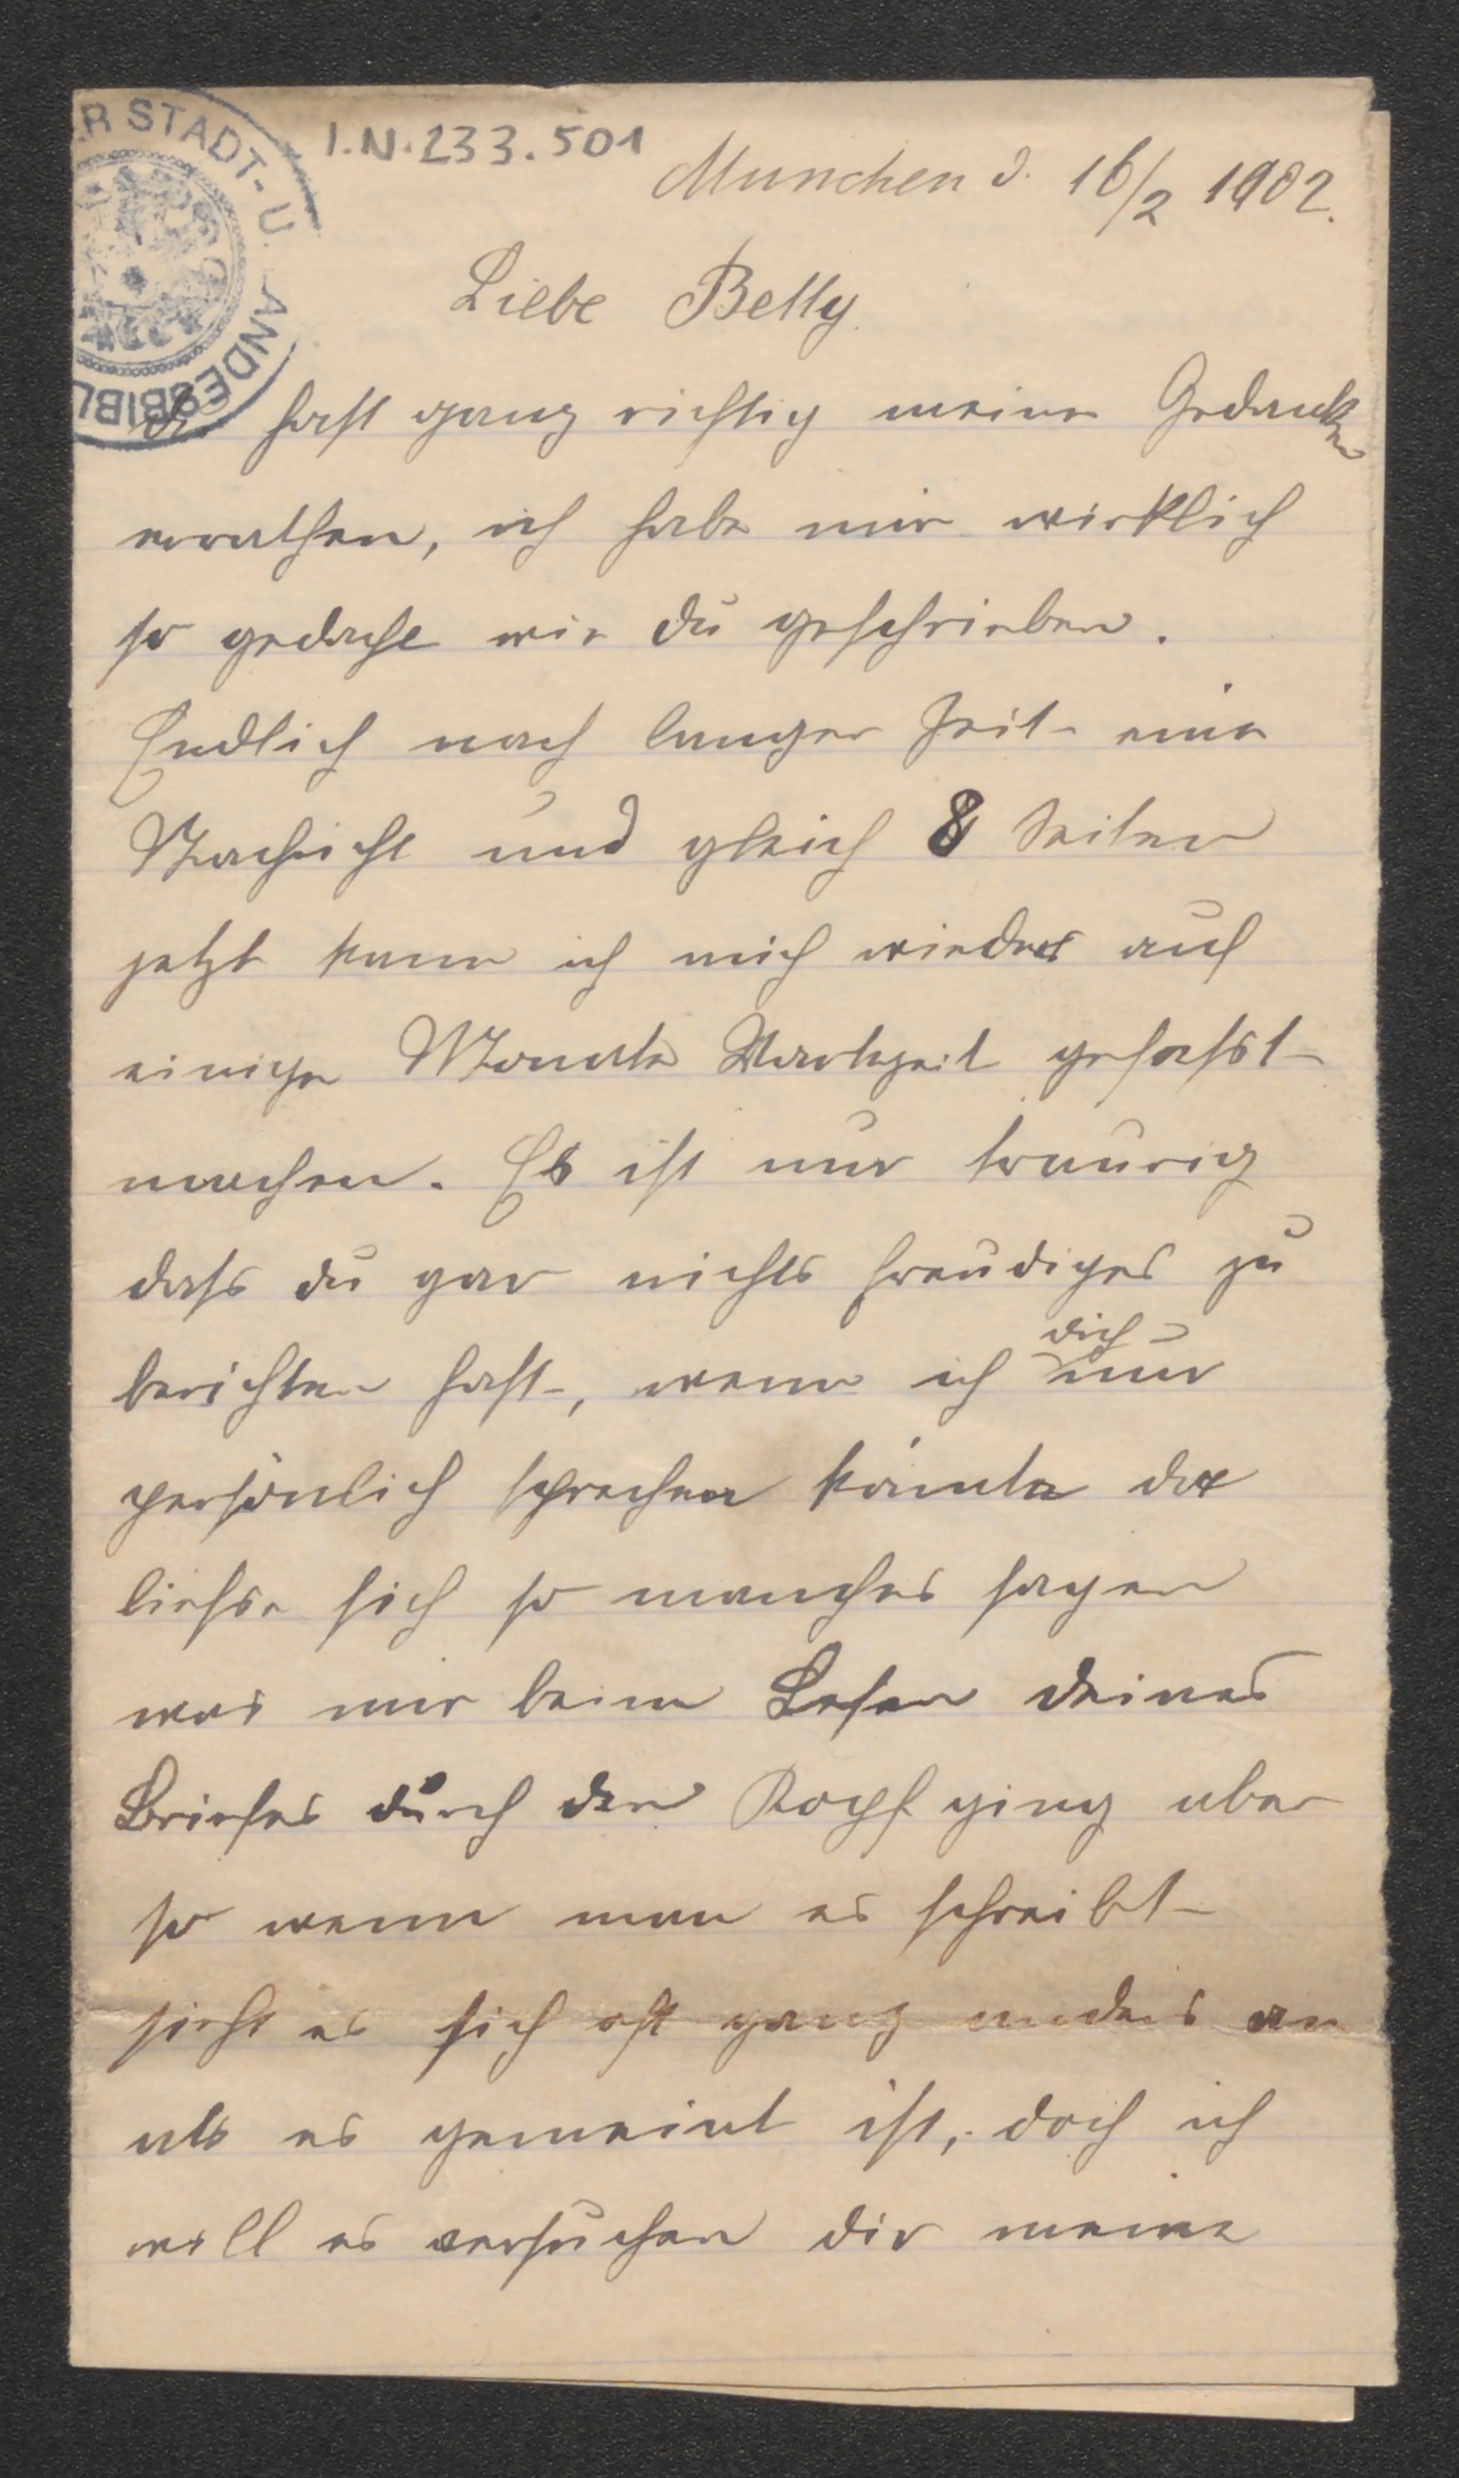 R STADT- U. LANDESBIBL
I.N. 233.501
Munchen d. 16/2 1902.
Liebe Betty
du hast ganz richtig meine Gedanken
errathen, ich habe mir wirklich
so gedacht wie du geschrieben.
Endlich nach langer Zeit eine
Nachricht und gleich 8 Seiten
jetzt kann ich mich wieder auf
einige Monate Wartezeit gefasst
machen. Es ist nur traurig
dass du gar nichts freudiges zu
berichten hast, wenn ich dich nur
persönlich sprechen könnte da
liesse sich so manches sagen
was mir beim Lesen deines
Briefes durch den Kopf ging aber
so wenn man es schreibt
sieht es sich oft ganz anders an
als es gemeint ist, doch ich
will es versuchen dir meine